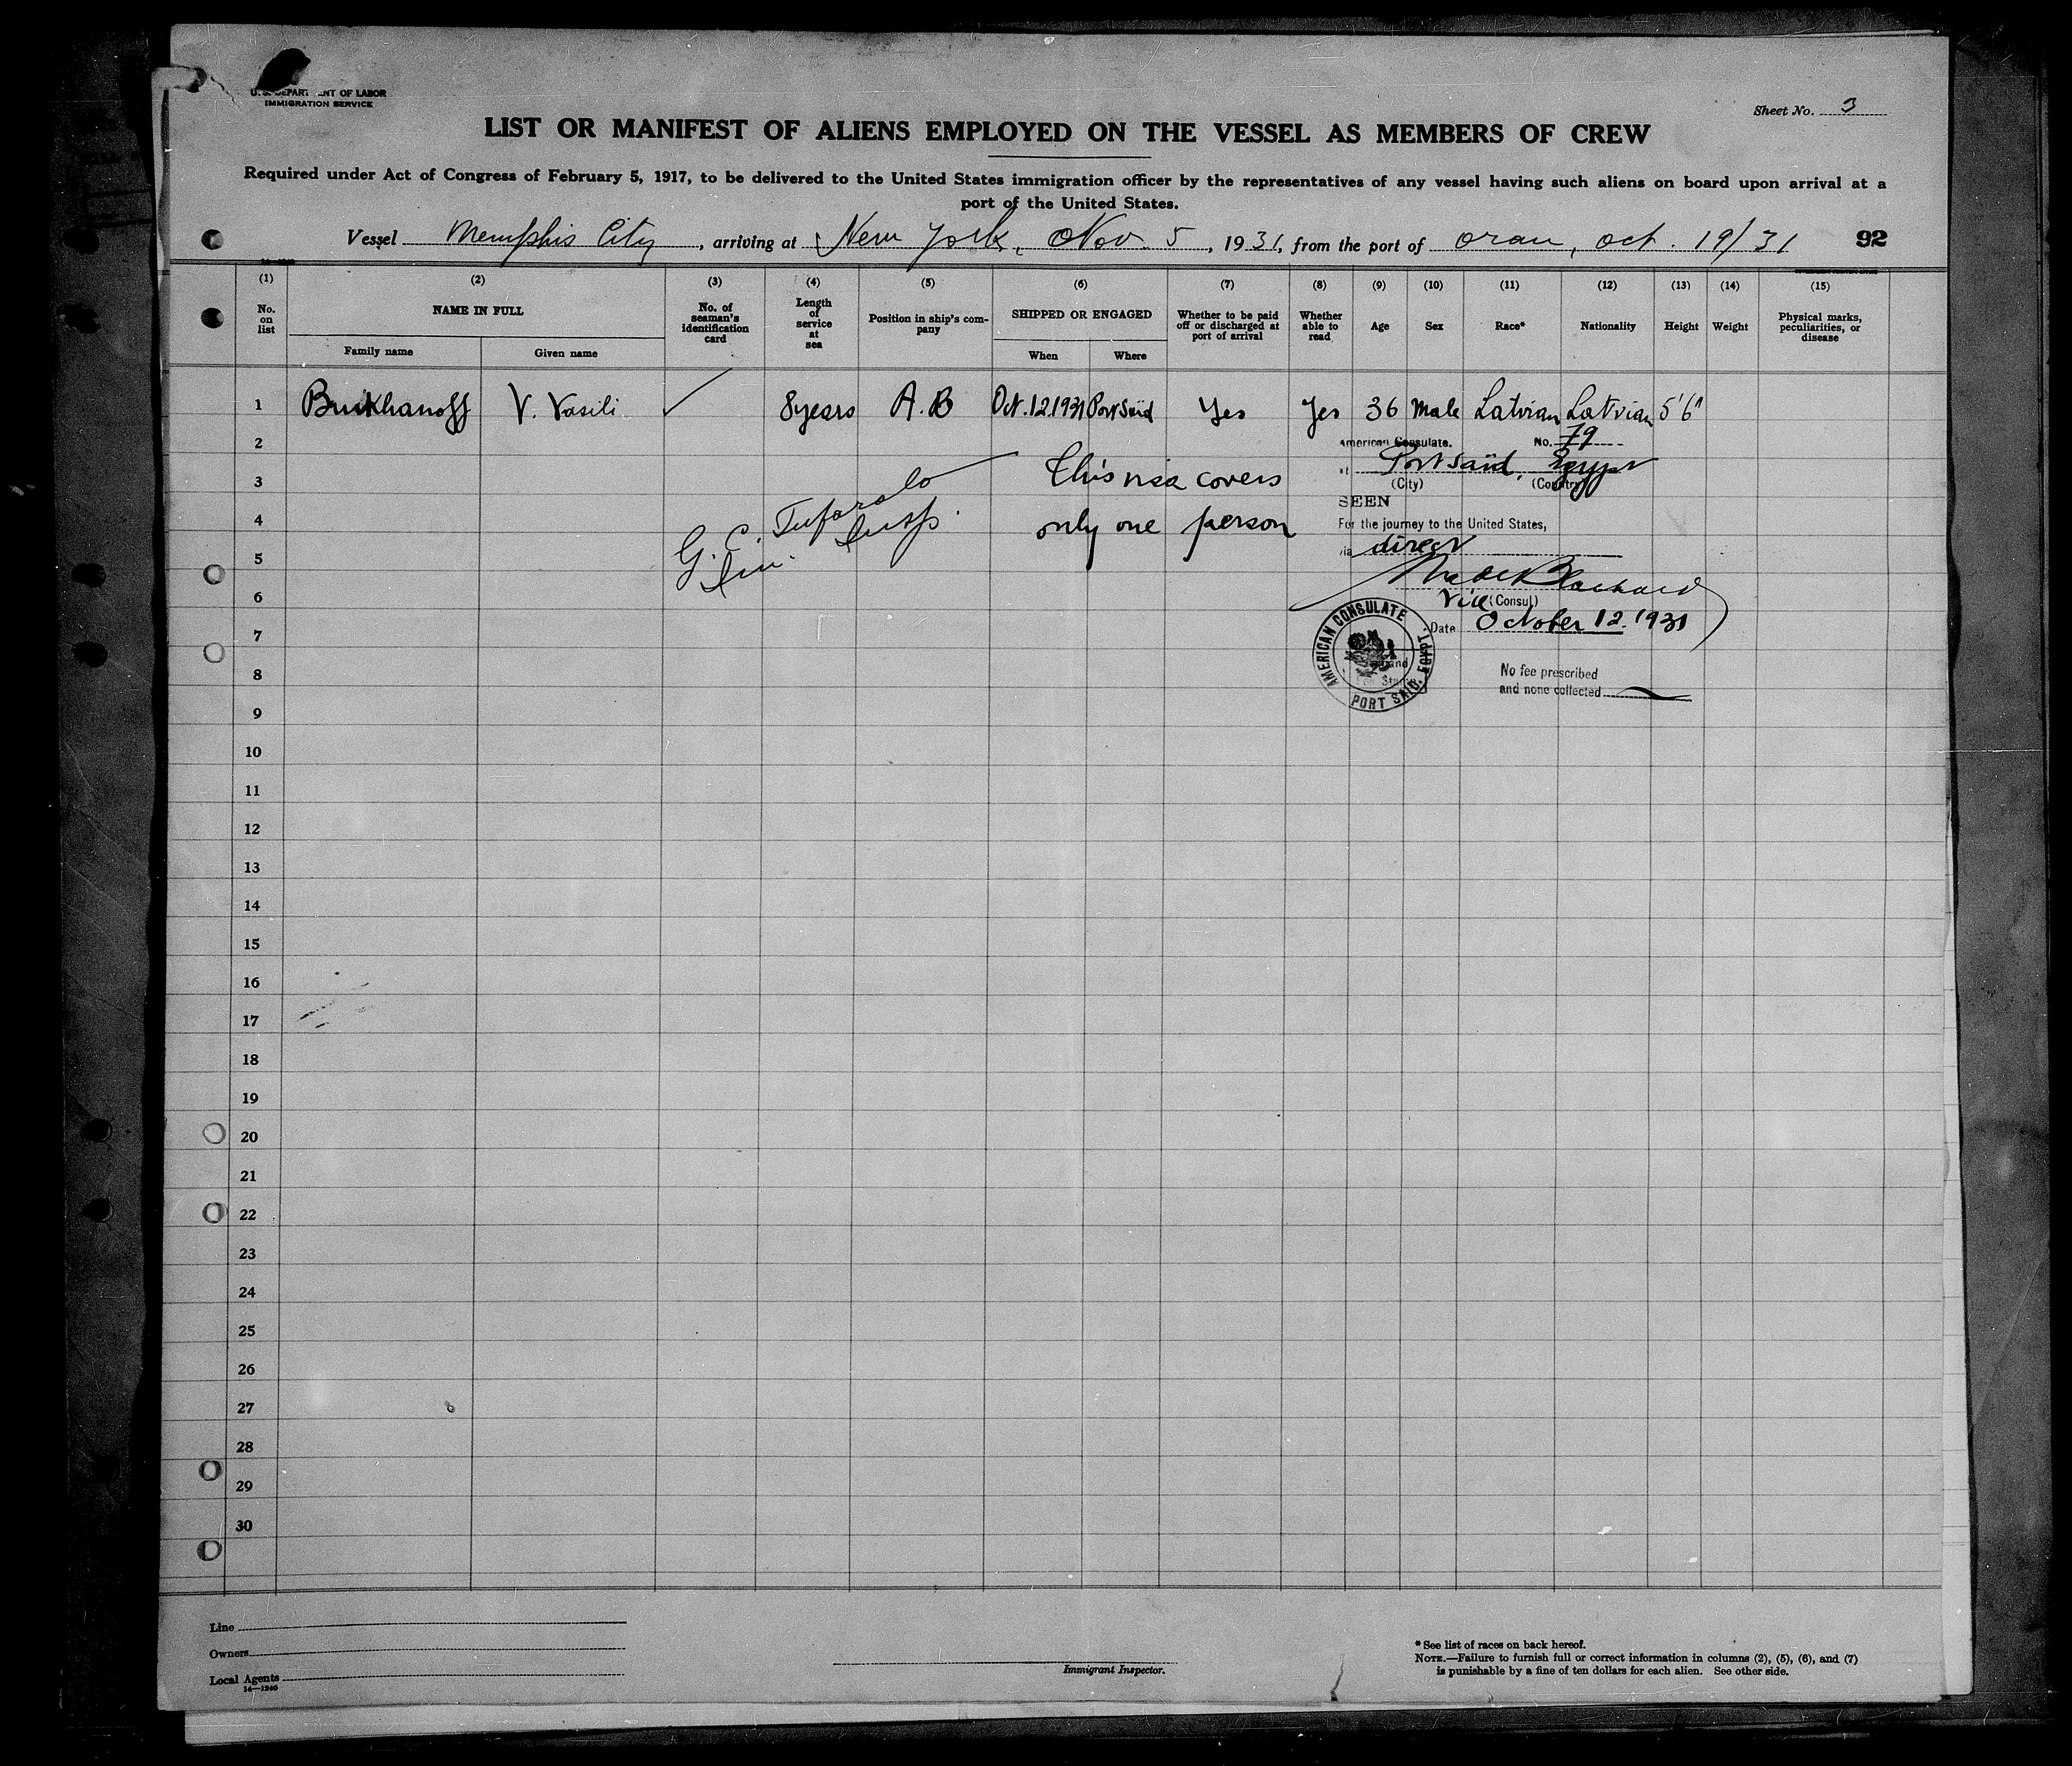 U. S. DEPARTMENT OF LABOR
IMMIGRATION SERVICE
Sheet No. 3
LIST OR MANIFEST OF ALIENS EMPLOYED ON THE VESSEL AS MEMBERS OF CREW
Required under Act of Congress of February 5, 1917, to be delivered to the United States immigration officer by the representatives of any vessel having such aliens on board upon arrival at a
port of the United States.
Vessel Memphis City, arriving at New York, Nov. 5, 1931, from the port of Oran, Oct. 19/31 92
(1) (2) (3) (4) (5) (6) (7) (8) (9) (10) (11) (12) (13) (14) (15)
No. on list
NAME IN FULL
Family name
Given name
No. of seaman's identification card
Length of service at sea
Position in ship's company
SHIPPED OR ENGAGED
When
Where
Whether to be paid off or discharged at port of arrival
Whether able to read
Age
Sex
Race*
Nationality
Height
Weight
Physical marks, peculiarities, or disease
1 Burkhanoff V. Vasili ✓ 8 years A.B Oct. 12.1931 Port Said Yes Yes 36 Male Latvian Latvian 5'6"
2
American Consulate. No. 79
3
at Port Said, Egypt
This visa covers
(City) (Country)
SEEN
4
G. C. Tufarolo
Imm. Insp.
only one person
For the journey to the United States,
5
via direct
6
Vice (Consul)
Date October 12. 1931
7
AMERICAN CONSULATE
PORT SAID, EGYPT.
8
No fee prescribed
and none collected
9
10
11
12
13
14
15
16
17
18
19
20
21
22
23
24
25
26
27
28
29
30
Line
Owners
Local Agents
14—1240
Immigrant Inspector.
* See list of races on back hereof.
NOTE.—Failure to furnish full or correct information in columns (2), (5), (6), and (7)
is punishable by a fine of ten dollars for each alien. See other side.